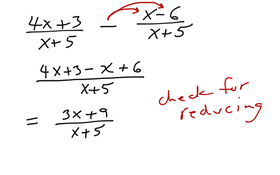 (4x+3)/(x+5) − (x−6)/(x+5)
(4x+3−x+6)/(x+5)
= (3x+9)/(x+5)
check for
reducing